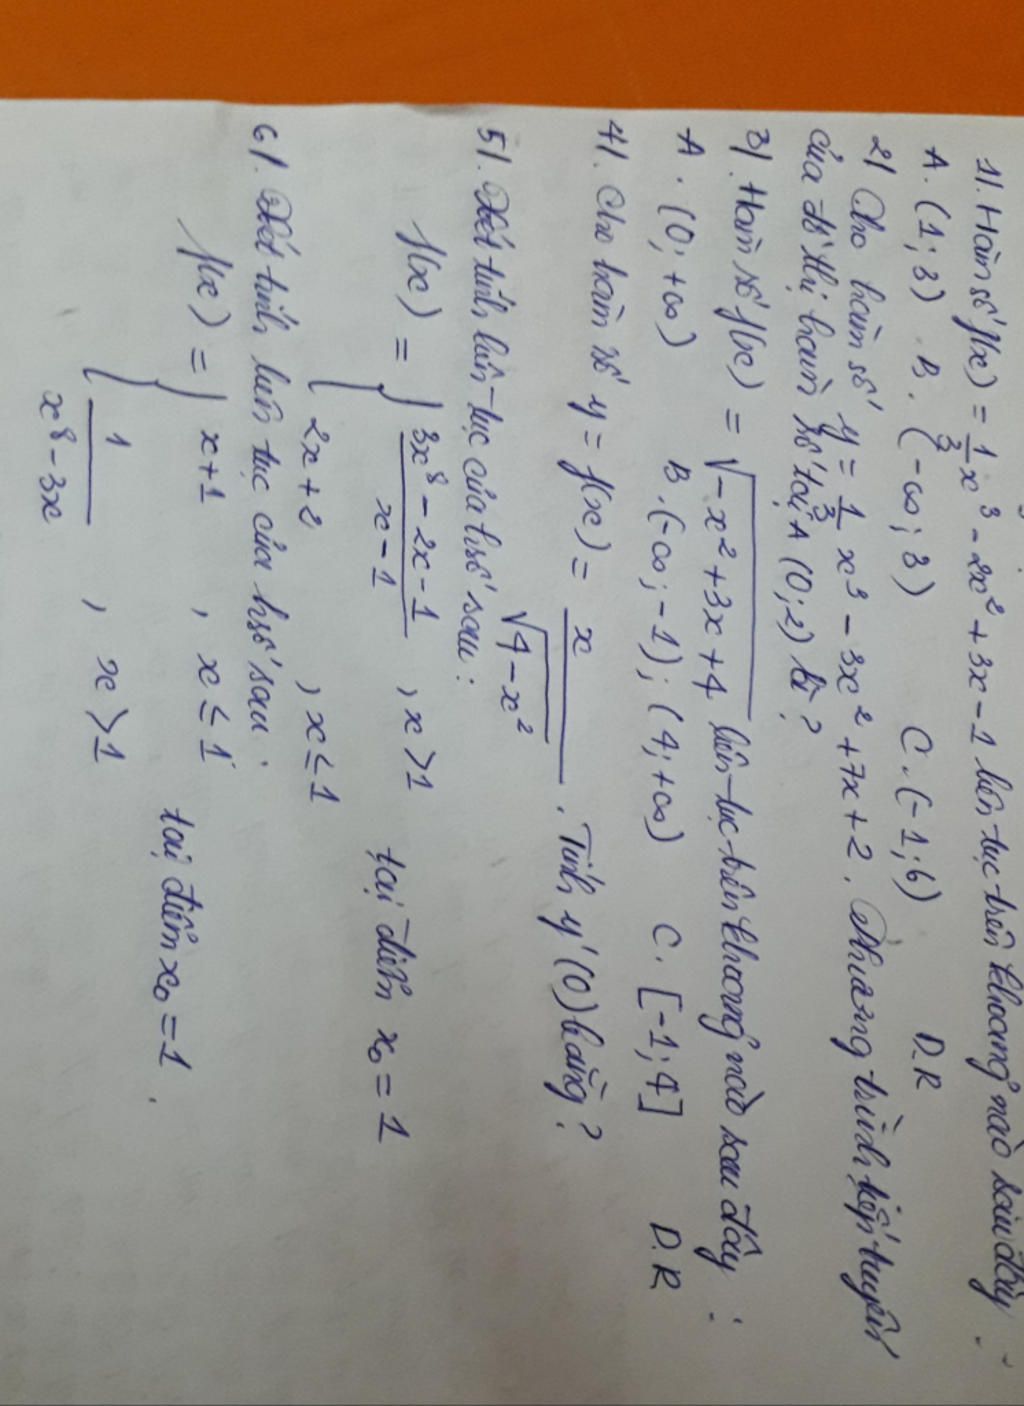 1/. Hàm số f(x) = 1/3 x³ - 2x² + 3x - 1 liên tục trên khoảng nào sau đây :
A. (1; 3) B. (-∞; 3) C. (-1; 6) D. R
2/ Cho hàm số y = 1/3 x³ - 3x² + 7x + 2. Phương trình tiếp tuyến
của đồ thị hàm số tại A (0; 2) là ?
3/. Hàm số f(x) = √(-x² + 3x + 4) liên tục trên khoảng nào sau đây :
A. (0; +∞) B. (-∞; -1); (4; +∞) C. [-1; 4] D. R
4/. Cho hàm số y = f(x) = x/√(4 - x²) . Tính y'(0) bằng ?
5/. Xét tính liên tục của hsố sau :
f(x) = { (3x⁸ - 2x - 1)/(x - 1) , x > 1
2x + 2 , x ≤ 1 tại điểm x₀ = 1
6/. Xét tính liên tục của hsố sau :
f(x) = { x + 1 , x ≤ 1
1/(x⁸ - 3x) , x > 1 tại điểm x₀ = 1.